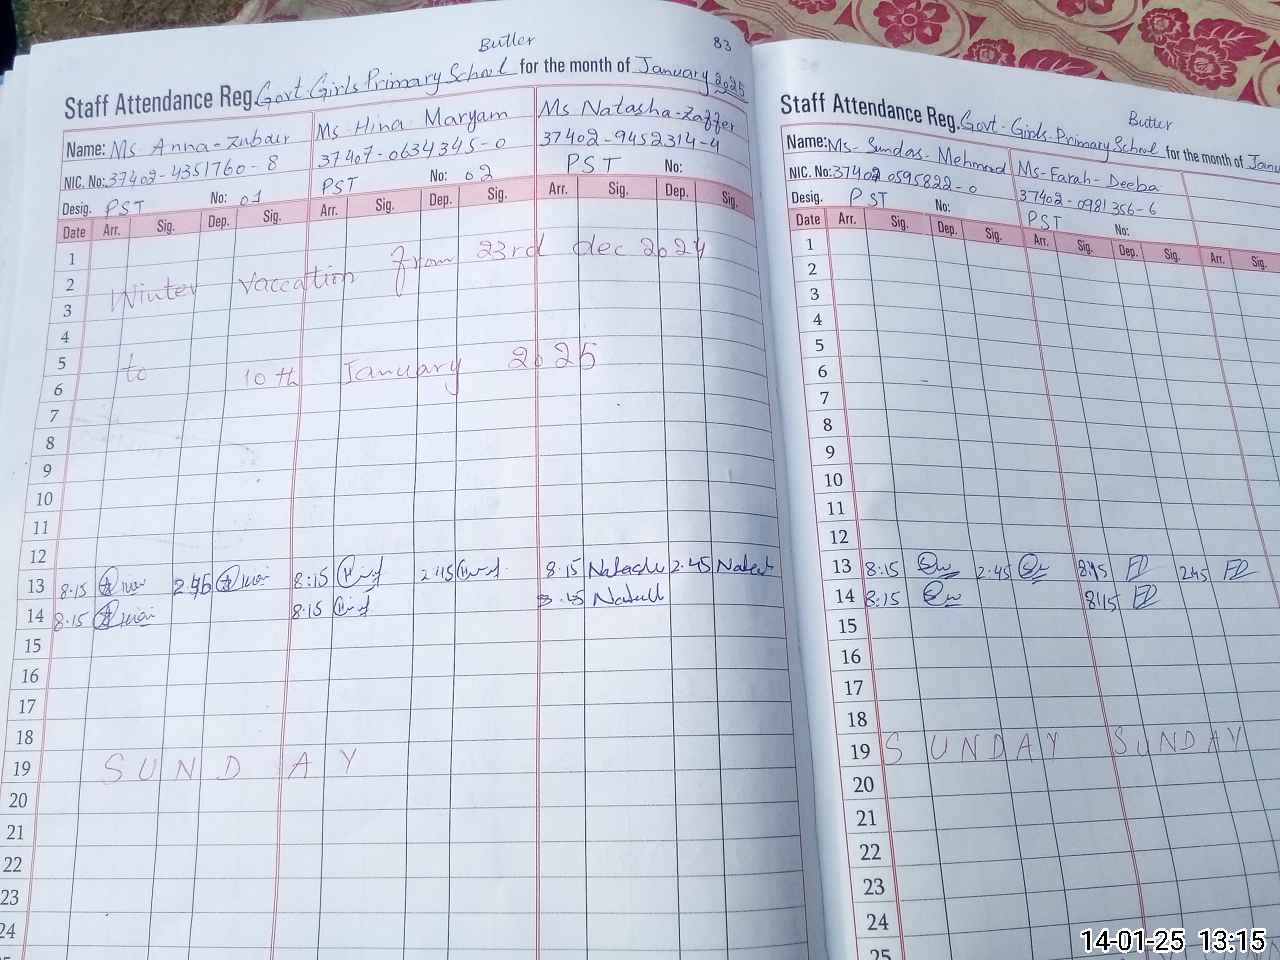 Butler
83
Staff Attendance Reg. Govt Girls Primary School for the month of January 2025
Name: Ms Anna-Zubair
NIC. No: 37402-4351760-8
Desig. PST No: 01
Ms Hina Maryam
37407-0634345-0
PST No: 02
Ms Natasha-Zaffer
37402-9452314-4
PST No:
Date Arr. Sig. Dep. Sig. Arr. Sig. Dep. Sig. Arr. Sig. Dep. Sig.
1
2
3
Winter vaccation from 23rd dec 2024
4
5
6
to 10th January 2025
7
8
9
10
11
12
13 8:15 2:45 8:15 2:15 8:15 2:45
14 8:15 8:15
15
16
17
18
19 SUNDAY
20
21
22
23
24
Butler
Staff Attendance Reg. Govt-Girls-Primary School for the month of Janu
Name: Ms-Sundas-Mehmood
NIC. No: 37402 0595822-0
Desig. PST No:
Ms-Farah-Deeba
37402-0981356-6
PST No:
Date Arr. Sig. Dep. Sig. Arr. Sig. Dep. Sig. Arr. Sig.
1
2
3
4
5
6
7
8
9
10
11
12
13 8:15 2:45 8:15 FD 2:45 FD
14 8:15 8:15 FD
15
16
17
18
19 SUNDAY SUNDAY
20
21
22
23
24
25
14-01-25 13:15